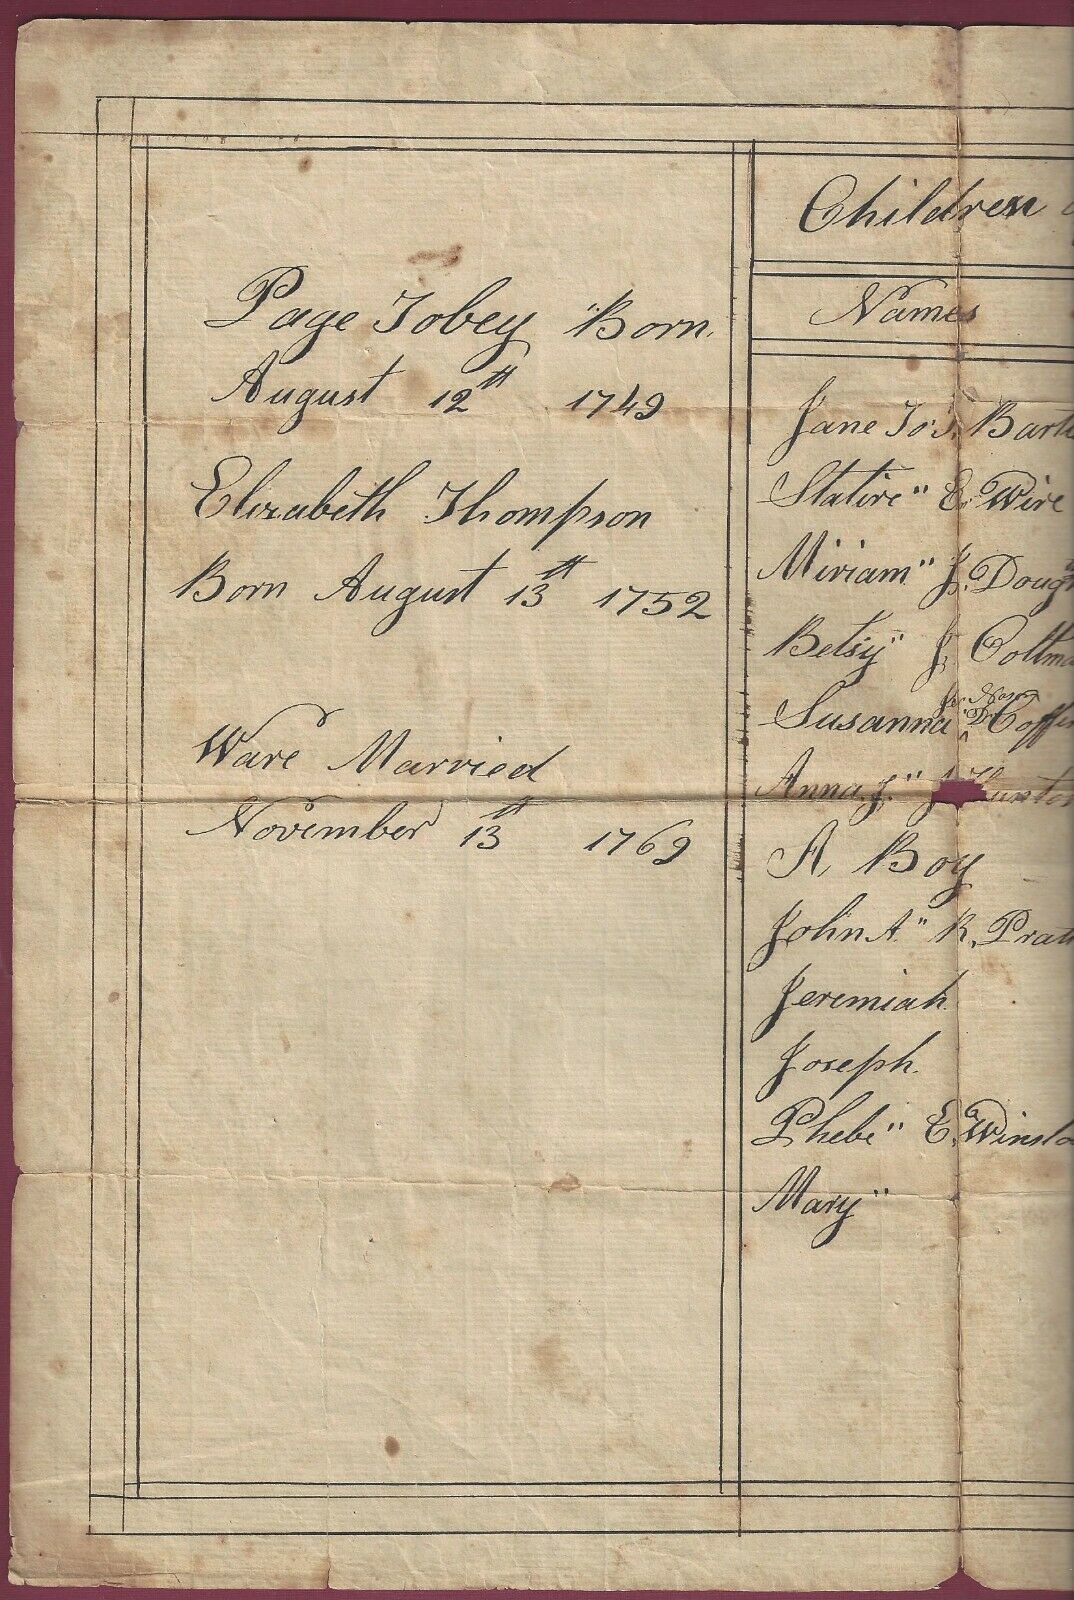 Page Tobey Born
August 12th 1749
Elizabeth Thompson
Born August 13th 1752
Ware Married
November 13th 1769
Children
Names
Jane To S. Bart
Statire" E. Wire
Miriam" J. Doug
Betsy" J. Coltma
Susanna" Coffin
Anna J."
A, Boy
John A." R. Pra
Jeremiah.
Joseph.
Phebe" E. Winslo
Mary"